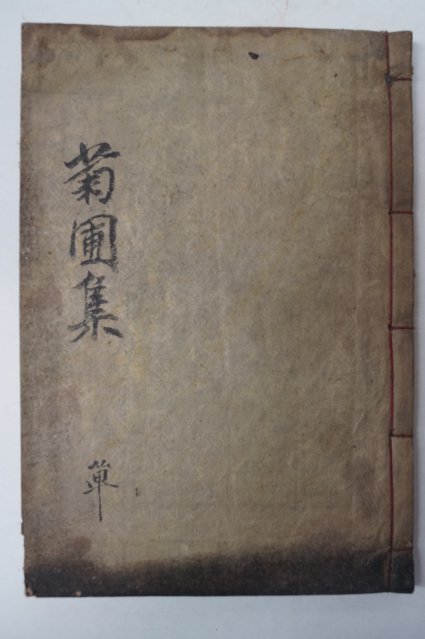 菊圃集
單